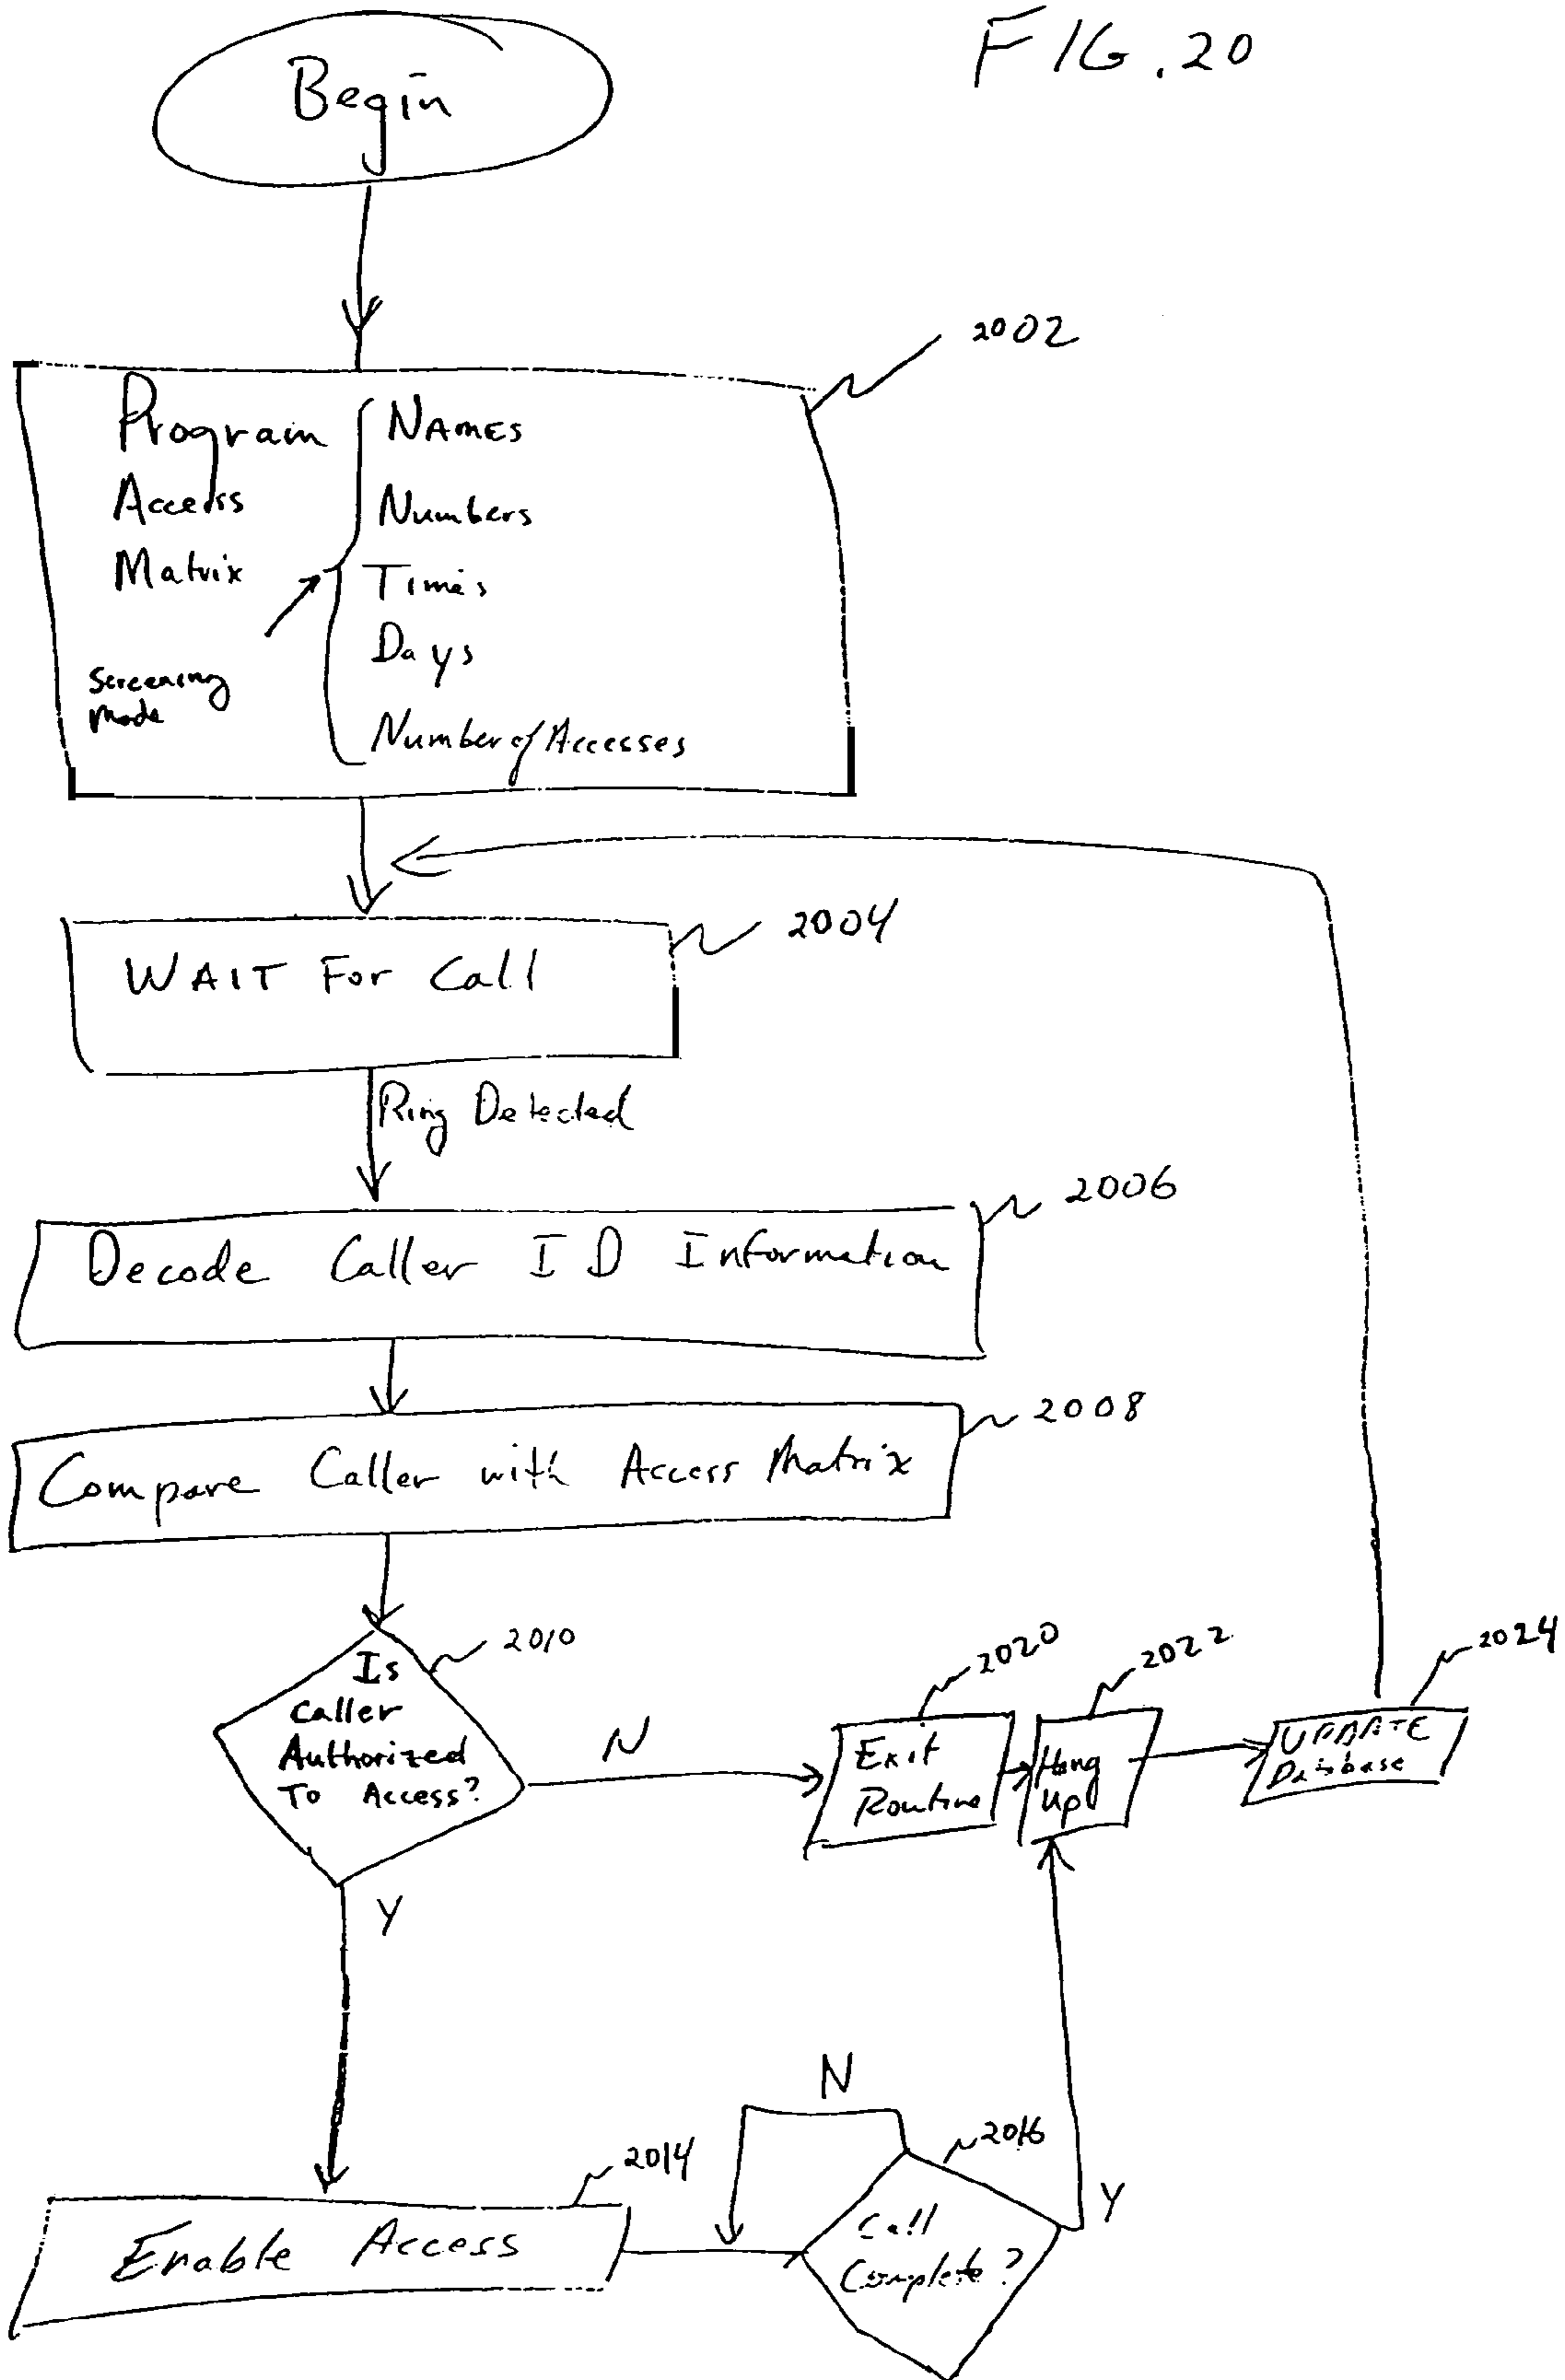 FIG. 20
Begin
2002
Program
Access
Matrix
Screening
mode
NAMES
Numbers
Times
Days
Number of Accesses
2004
WAIT For Call
Ring Detected
2006
Decode Caller ID Information
2008
Compare Caller with Access Matrix
2010
Is
Caller
Authorized
To Access?
N
2020
Exit
Routine
2022
Hang
Up
2024
UPDATE
Database
Y
2014
Enable Access
N
2016
Call
Complete?
Y